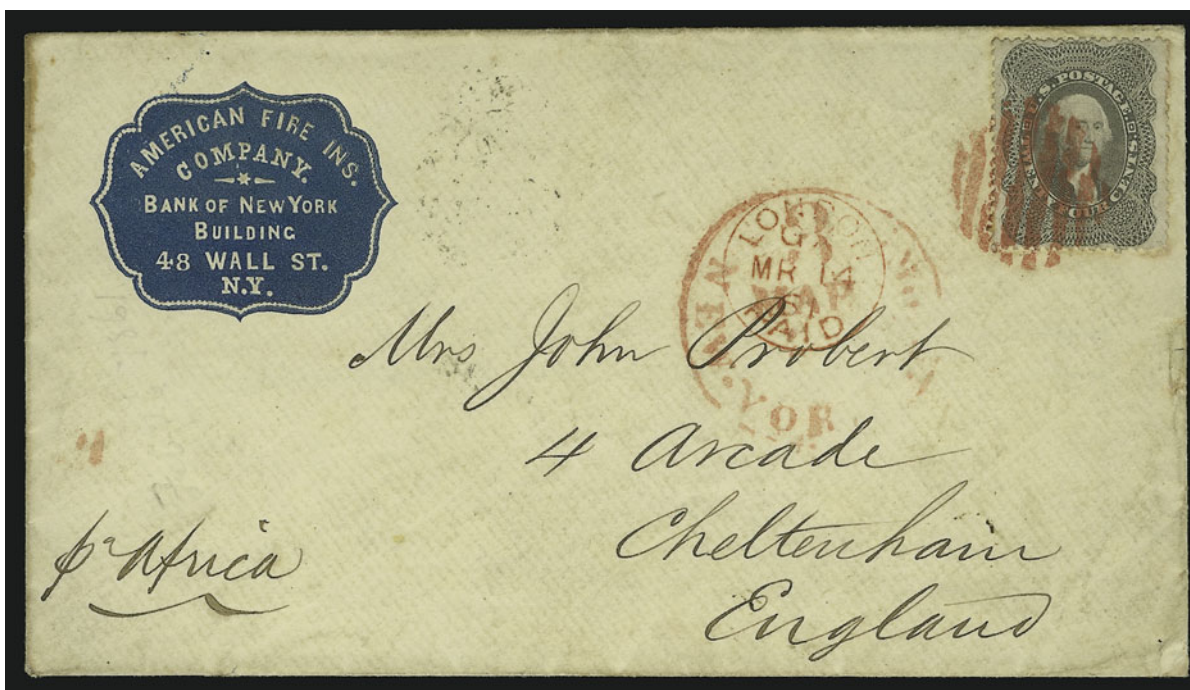 AMERICAN FIRE INS.
COMPANY.
BANK OF NEW YORK
BUILDING
48 WALL ST.
N.Y.
U.S. POSTAGE.
TWENTY FOUR CENTS
LONDON
MR 14
61
PAID
NEW YORK
Mrs John Probert
4 Arcade
Cheltenham
England
pr Africa